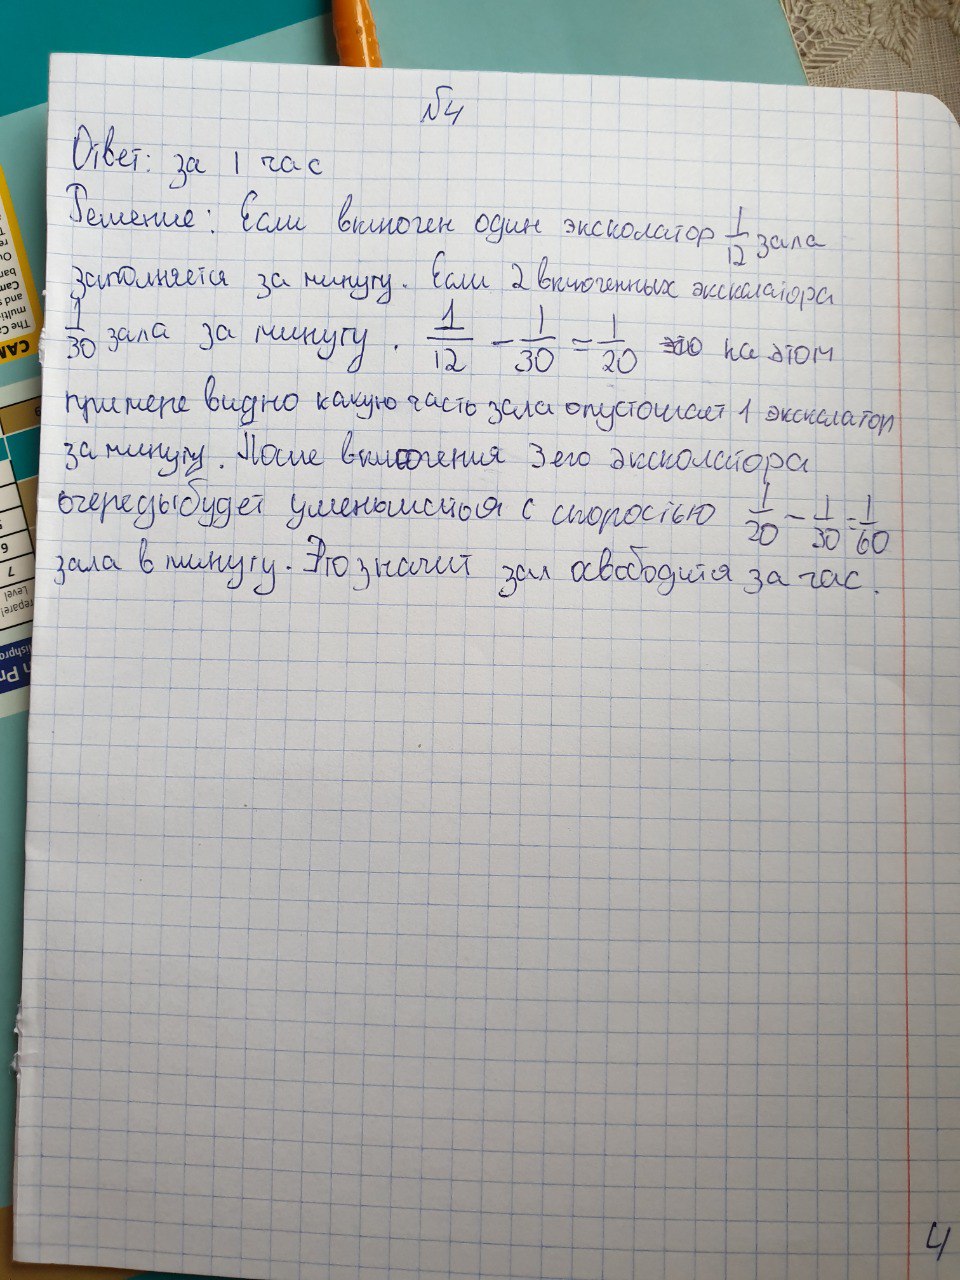 №4
Ответ: за 1 час
Решение: Если включен один эксколатор 1/12 зала
заполняется за минуту. Если 2 включенных экскалатора
1/30 зала за минуту. 1/12 - 1/30 = 1/20 на этом
примере видно какую часть зала опустошает 1 экскалатор
за минуту. После включения 3его эксколатора
очередь будет уменьшаться с скоростью 1/20 - 1/30 = 1/60
зала в минуту. Это значит зал освободится за час.
4
CAM
The Ca
multi-
and s
Cam
ban
Ou
re
T
9
5
6
7
Level
repare!
lishpro
n Pr